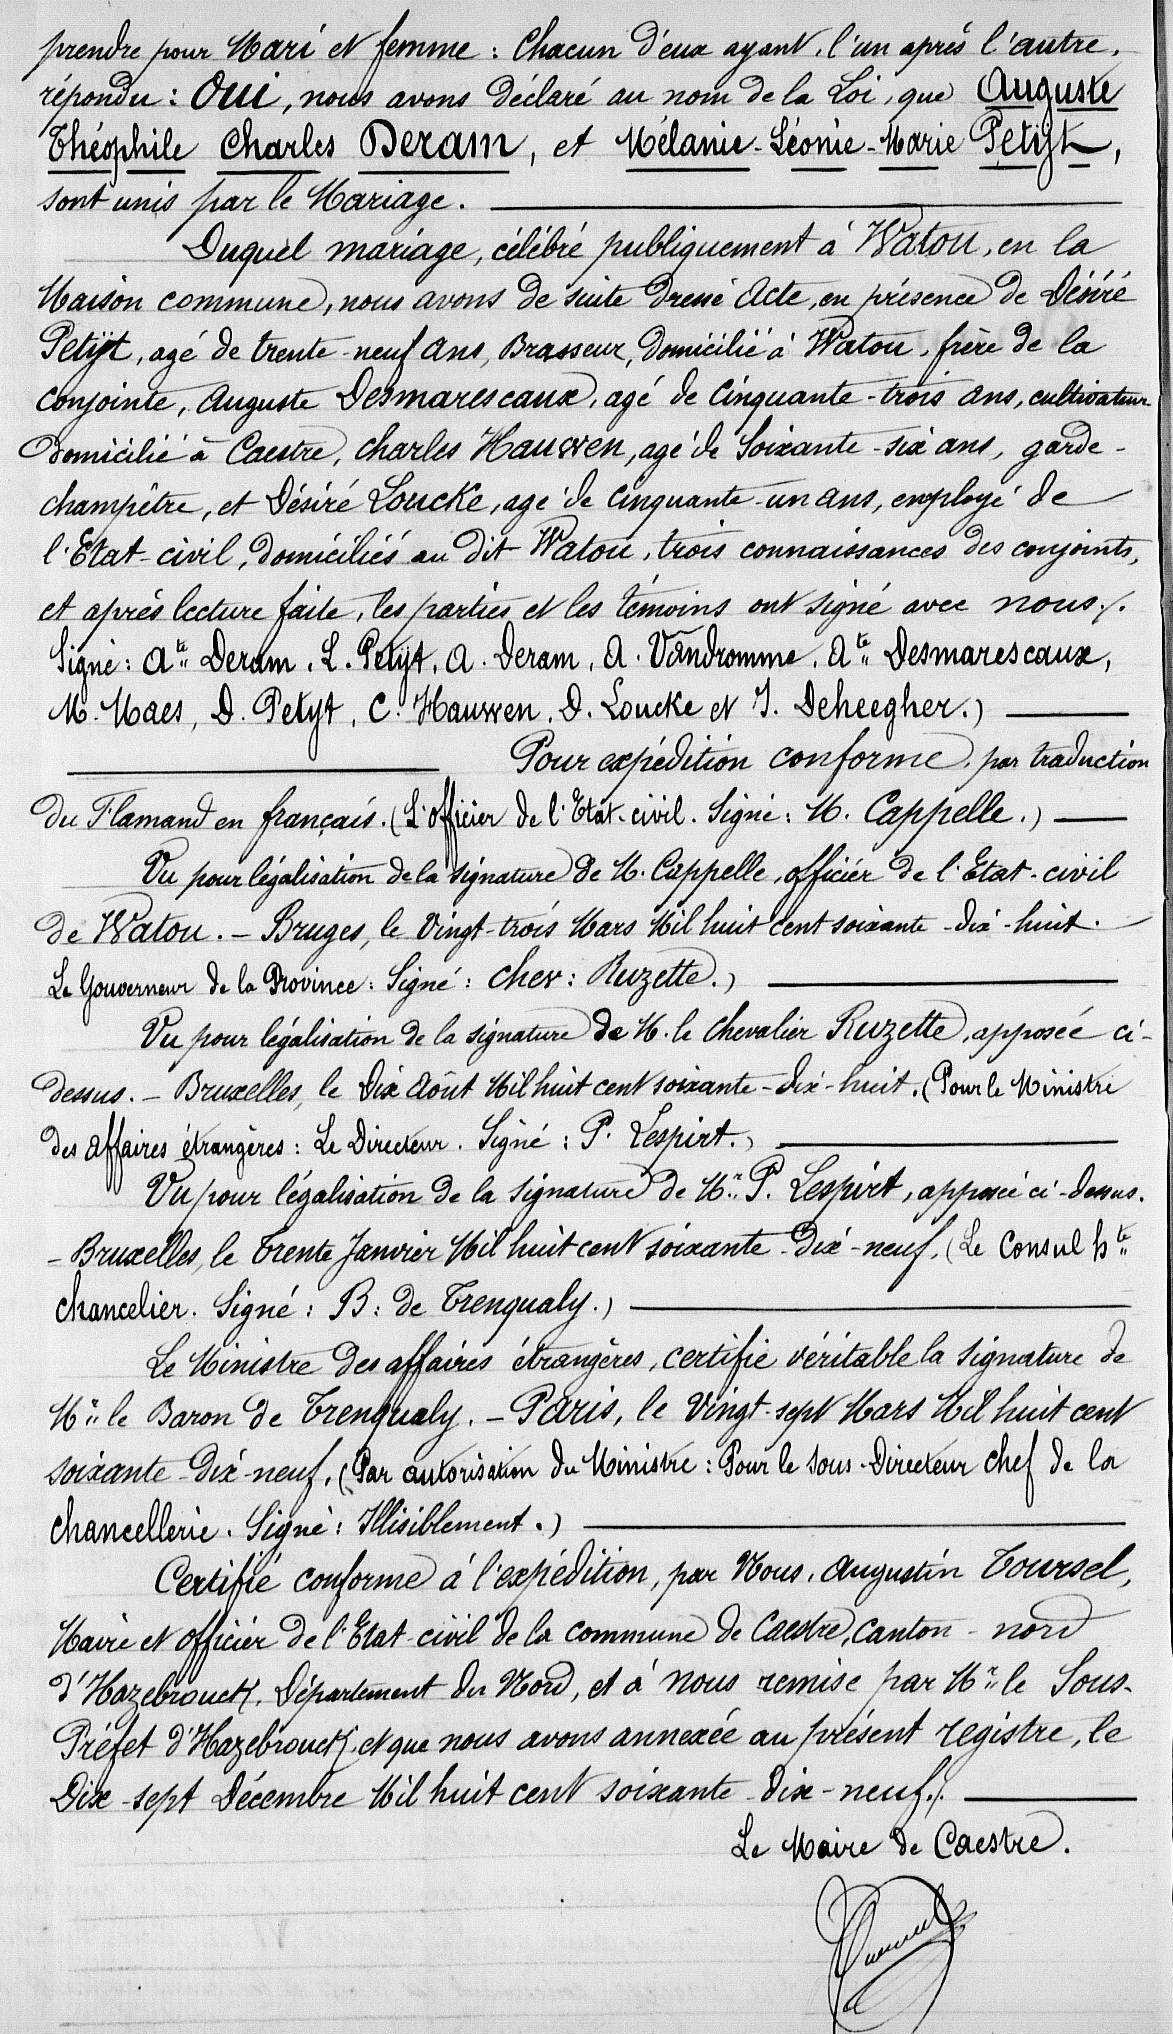 prendre pour Mari et femme : Chacun d'eux ayant, l'un après l'autre,
répondu : Oui, nous avons déclaré au nom de la Loi, que Auguste
Théophile Charles Deram, et Mélanie-Léonie-Marie Petijt,
sont unis par le Mariage.
Duquel mariage, célébré publiquement à Watou, en la
Maison commune, nous avons de suite dressé Acte, en présence de Désiré
Petijt, agé de trente-neuf ans, Brasseur, domicilié à Watou, frère de la
conjointe, Auguste Desmarescaux, agé de Cinquante-trois ans, cultivateur
domicilié à Caestre, Charles Hauwen, agé de Soixante-six ans, garde-
champêtre, et Désiré Loucke, agé de cinquante-un ans, employé de
l'Etat-civil, domiciliés au dit Watou, trois connaissances des conjoints,
et après lecture faite, les parties et les témoins ont signé avec nous./.
Signé : Ate Deram, L. Petijt, A. Deram, A. Vandromme, Ate Desmarescaux,
M. Maes, D. Petyt, C. Hauwen, D. Loucke et J. Deheegher.)
Pour expédition conforme, par traduction
du Flamand en français. (L'officier de l'Etat-civil. Signé : M. Cappelle.)
Vu pour légalisation de la signature de M. Cappelle, officiér de l'Etat-civil
de Watou. - Bruges, le Vingt-trois Mars Mil huit cent soixante-dix-huit.
Le Gouverneur de la Province : Signé : chev : Ruzette.)
Vu pour légalisation de la signature de M. le chevalier Ruzette, apposée ci-
dessus. - Bruxelles, le Dix Août Mil huit cent soixante-dix-huit. (Pour le Ministre
des affaires étrangères : Le Directeur. Signé : P. Lespirt.)
Vu pour légalisation de la signature de Mr P. Lespirt, apposée ci-dessus.
- Bruxelles, le Trente Janvier Mil huit cent soixante-dix-neuf. (Le Consul hte
chancelier. Signé : B : de Trenqualy.)
Le Ministre des affaires étrangères, certifie véritable la signature de
Mr le Baron de Trenqualy. - Paris, le Vingt-sept Mars Mil huit cent
soixante-dix-neuf. (Par autorisation du Ministre : Pour le sous-Directeur chef de la
chancellerie. Signé : Illisiblement.)
Certifié conforme à l'expédition, par Nous, Augustin Toursel,
Maire et officier de l'Etat-civil de la commune de Caestre, canton-nord
d'Hazebrouck, Département du Nord, et à nous remise par Mr le Sous-
Préfet d'Hazebrouck, et que nous avons annexée au présent registre, le
Dix-sept Décembre Mil huit cent soixante-dix-neuf./.
Le Maire de Caestre.